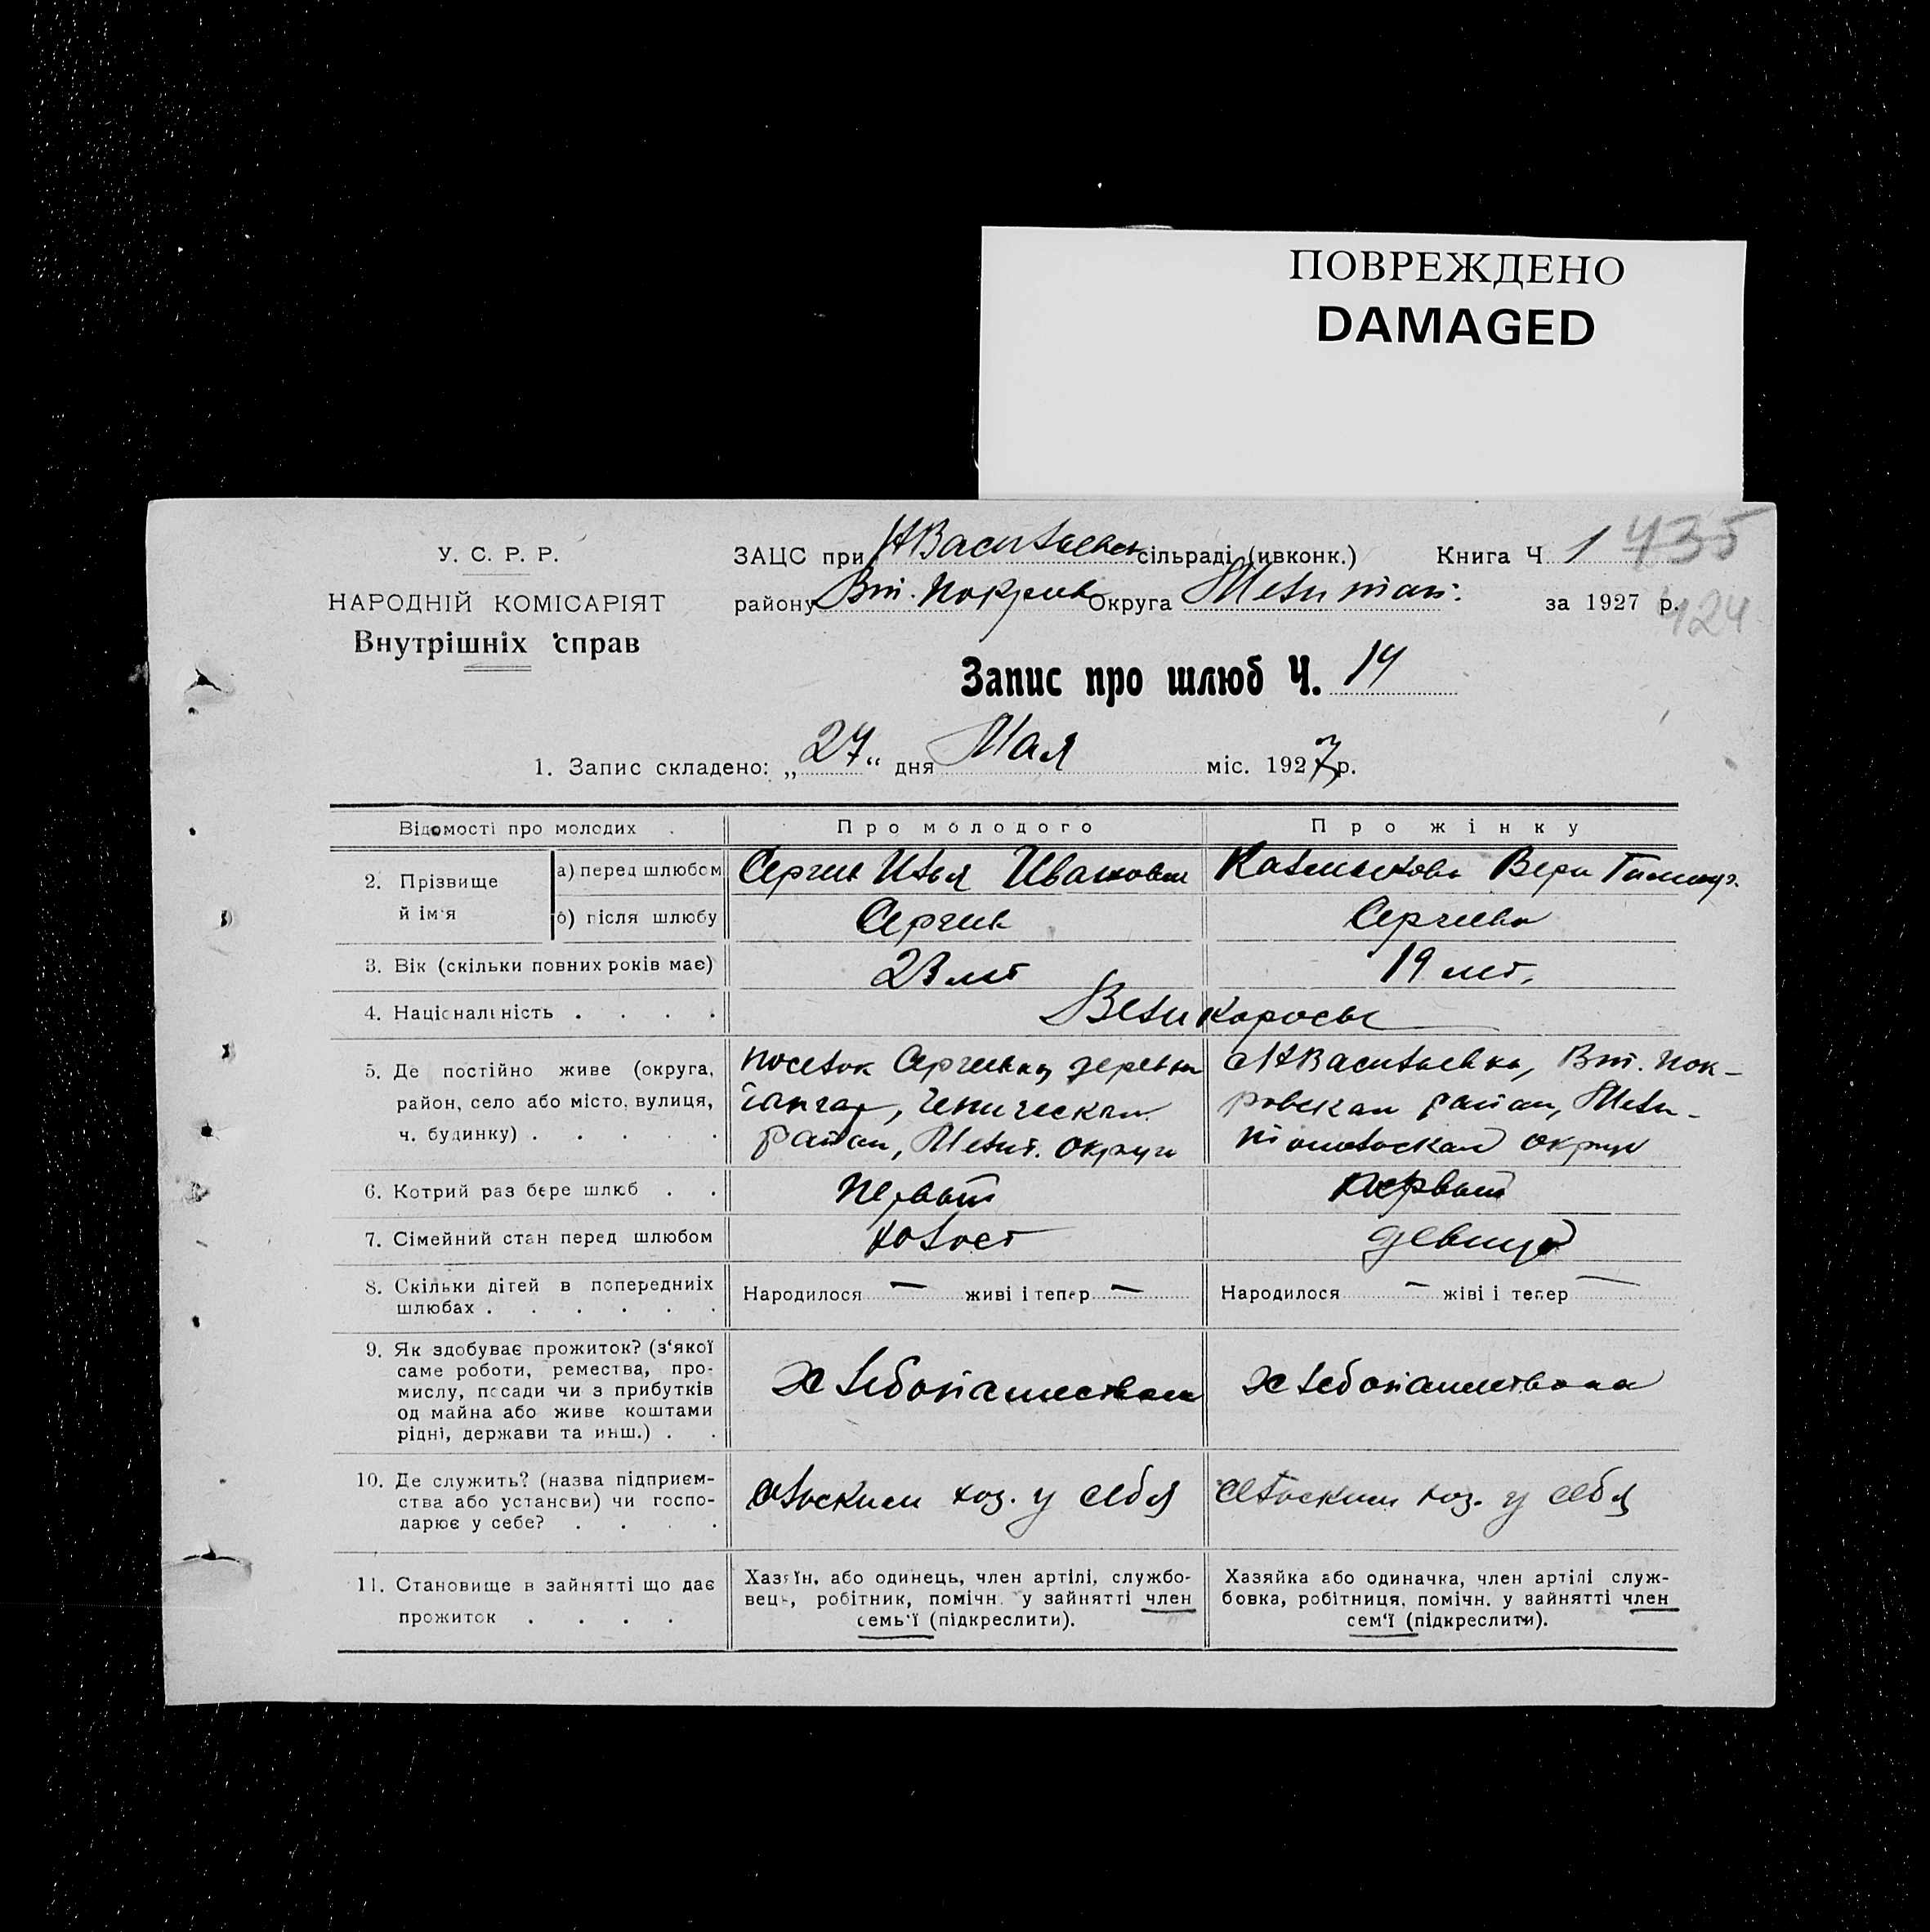 ПОВРЕЖДЕНО
DAMAGED
У. С. Р. Р.
НАРОДНІЙ КОМІСАРІЯТ
Внутрішніх справ
ЗАЦС при НВасильевск сільраді (ивконк.) Книга Ч 1 435
району Вт. Покров Округа Мелитоп: за 1927 р. 424
Запис про шлюб Ч. 14
1. Запис складено: „27“ дня Мая міс. 1927 р.
Відомості про молодих Про молодого Про жінку
2. Прізвище й ім'я а) перед шлюбом Сергиев Илья Иванович Вера
б) після шлюбу Сергиев Сергиева
3. Вік (скільки повних років має) 23 лет 19 лет,
4. Національність . . . . Великоросы
5. Де постійно живе (округа, поселок деревня с НВасильевка, Вт. Пок-
район, село або місто, вулиця, Геническ. ровскаго район, Мели-
ч. будинку) . . . . . район, Мелит. округи топольскаго округи
6. Котрий раз бере шлюб . . первый первый
7. Сімейний стан перед шлюбом холост девица
8. Скільки дітей в попередниіх Народилося — живі і тепер — Народилося — жіві і тепер —
шлюбах . . . . . .
9. Як здобуває прожиток? (з‘якої
саме роботи, ремества, про-
мислу, посади чи з прибутків хлебопашеством хлебопашество
од майна або живе коштами
рідні, держави та инш.) . .
10. Де служить? (назва підприєм-
ства або установи) чи госпо- сельским хоз. у себя сельским хоз. у себя
дарює у себе? . . . .
11. Становище в зайнятті що дає Хазяїн, або одинець, член артілі, службо- Хазяйка або одиначка, член артілі служ-
прожиток . . . . вець, робітник, помічн. у зайнятті член бовка, робітниця, помічн. у зайнятті член
семь‘ї (підкреслити). сем‘ї (підкреслити).